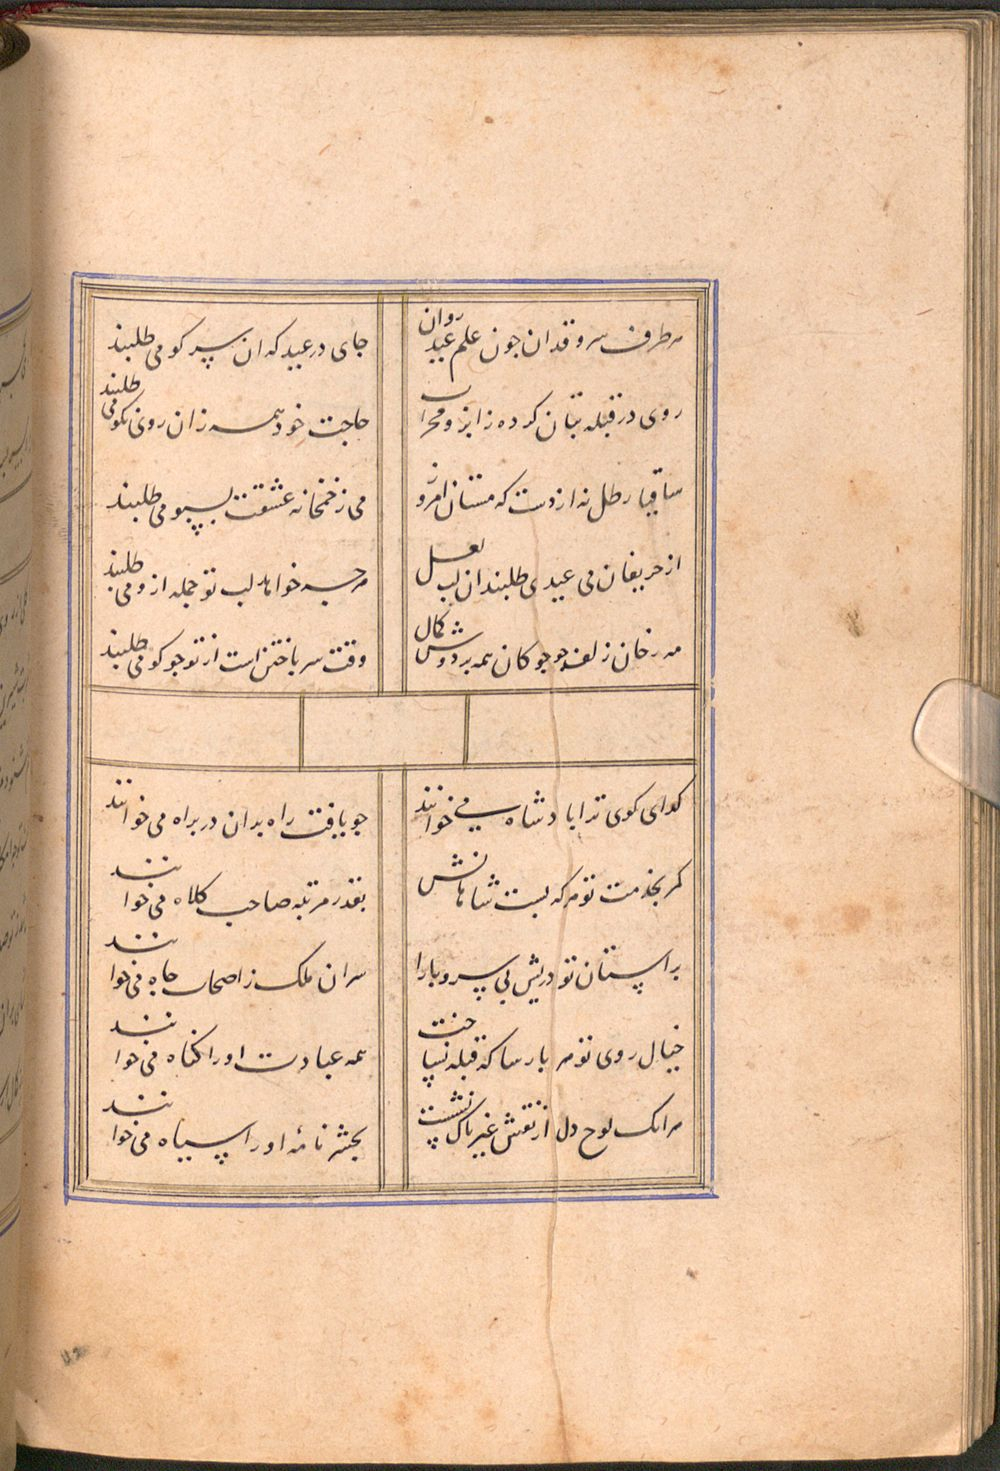 هر طرف سرو قدان جون علم عید روان
جای در عید که ان سر کو می طلبند
روی در قبله بتان کرده ز ابرو و محراب
حاجت خود همه زان روی نکو می طلبند
ساقیا رطل نه از دست که مستان امروز
می ز خمخانه عشقت بسبو می طلبند
از حریفان می عیدی طلبند ان لب لعل
هرچه خواهد لب تو جمله ازو می طلبند
مه رخان زلف جو جوکان همه بر دوش کمال
وقت سر باختن است از تو جو کو می طلبند
کدای کوی ترا پادشاه می خوانند
جو یافت راه بدان در براه می خوانند
کمر بخدمت تو هر که بست شاهانش
بقدر مرتبه صاحب کلاه می خوانند
بر استان تو درویش بی سر و پا را
سران ملک ز اصحاب جاه می خوانند
خیال روی تو هر پارسا که قبله نساخت
همه عبادت او را کناه می خوانند
هر انک لوح دل از نقش غیر پاک نشست
بحشر نامه او را سیاه می خوانند